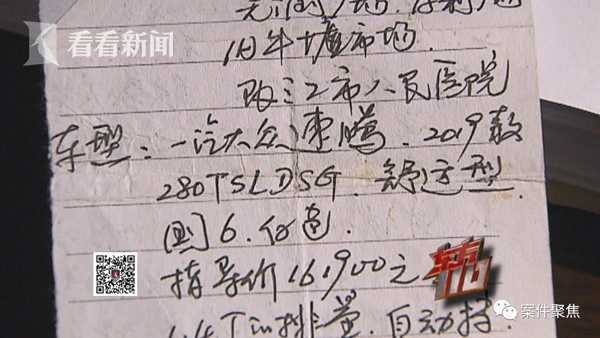 看看新闻
旧牛墟市场.
阳江市人民医院
车型：一汽大众速腾. 2019款
280TSI DSG. 舒适型.
国6. 白色.
指导价161900元
1.4T的排量. 自动挡.
案件聚焦